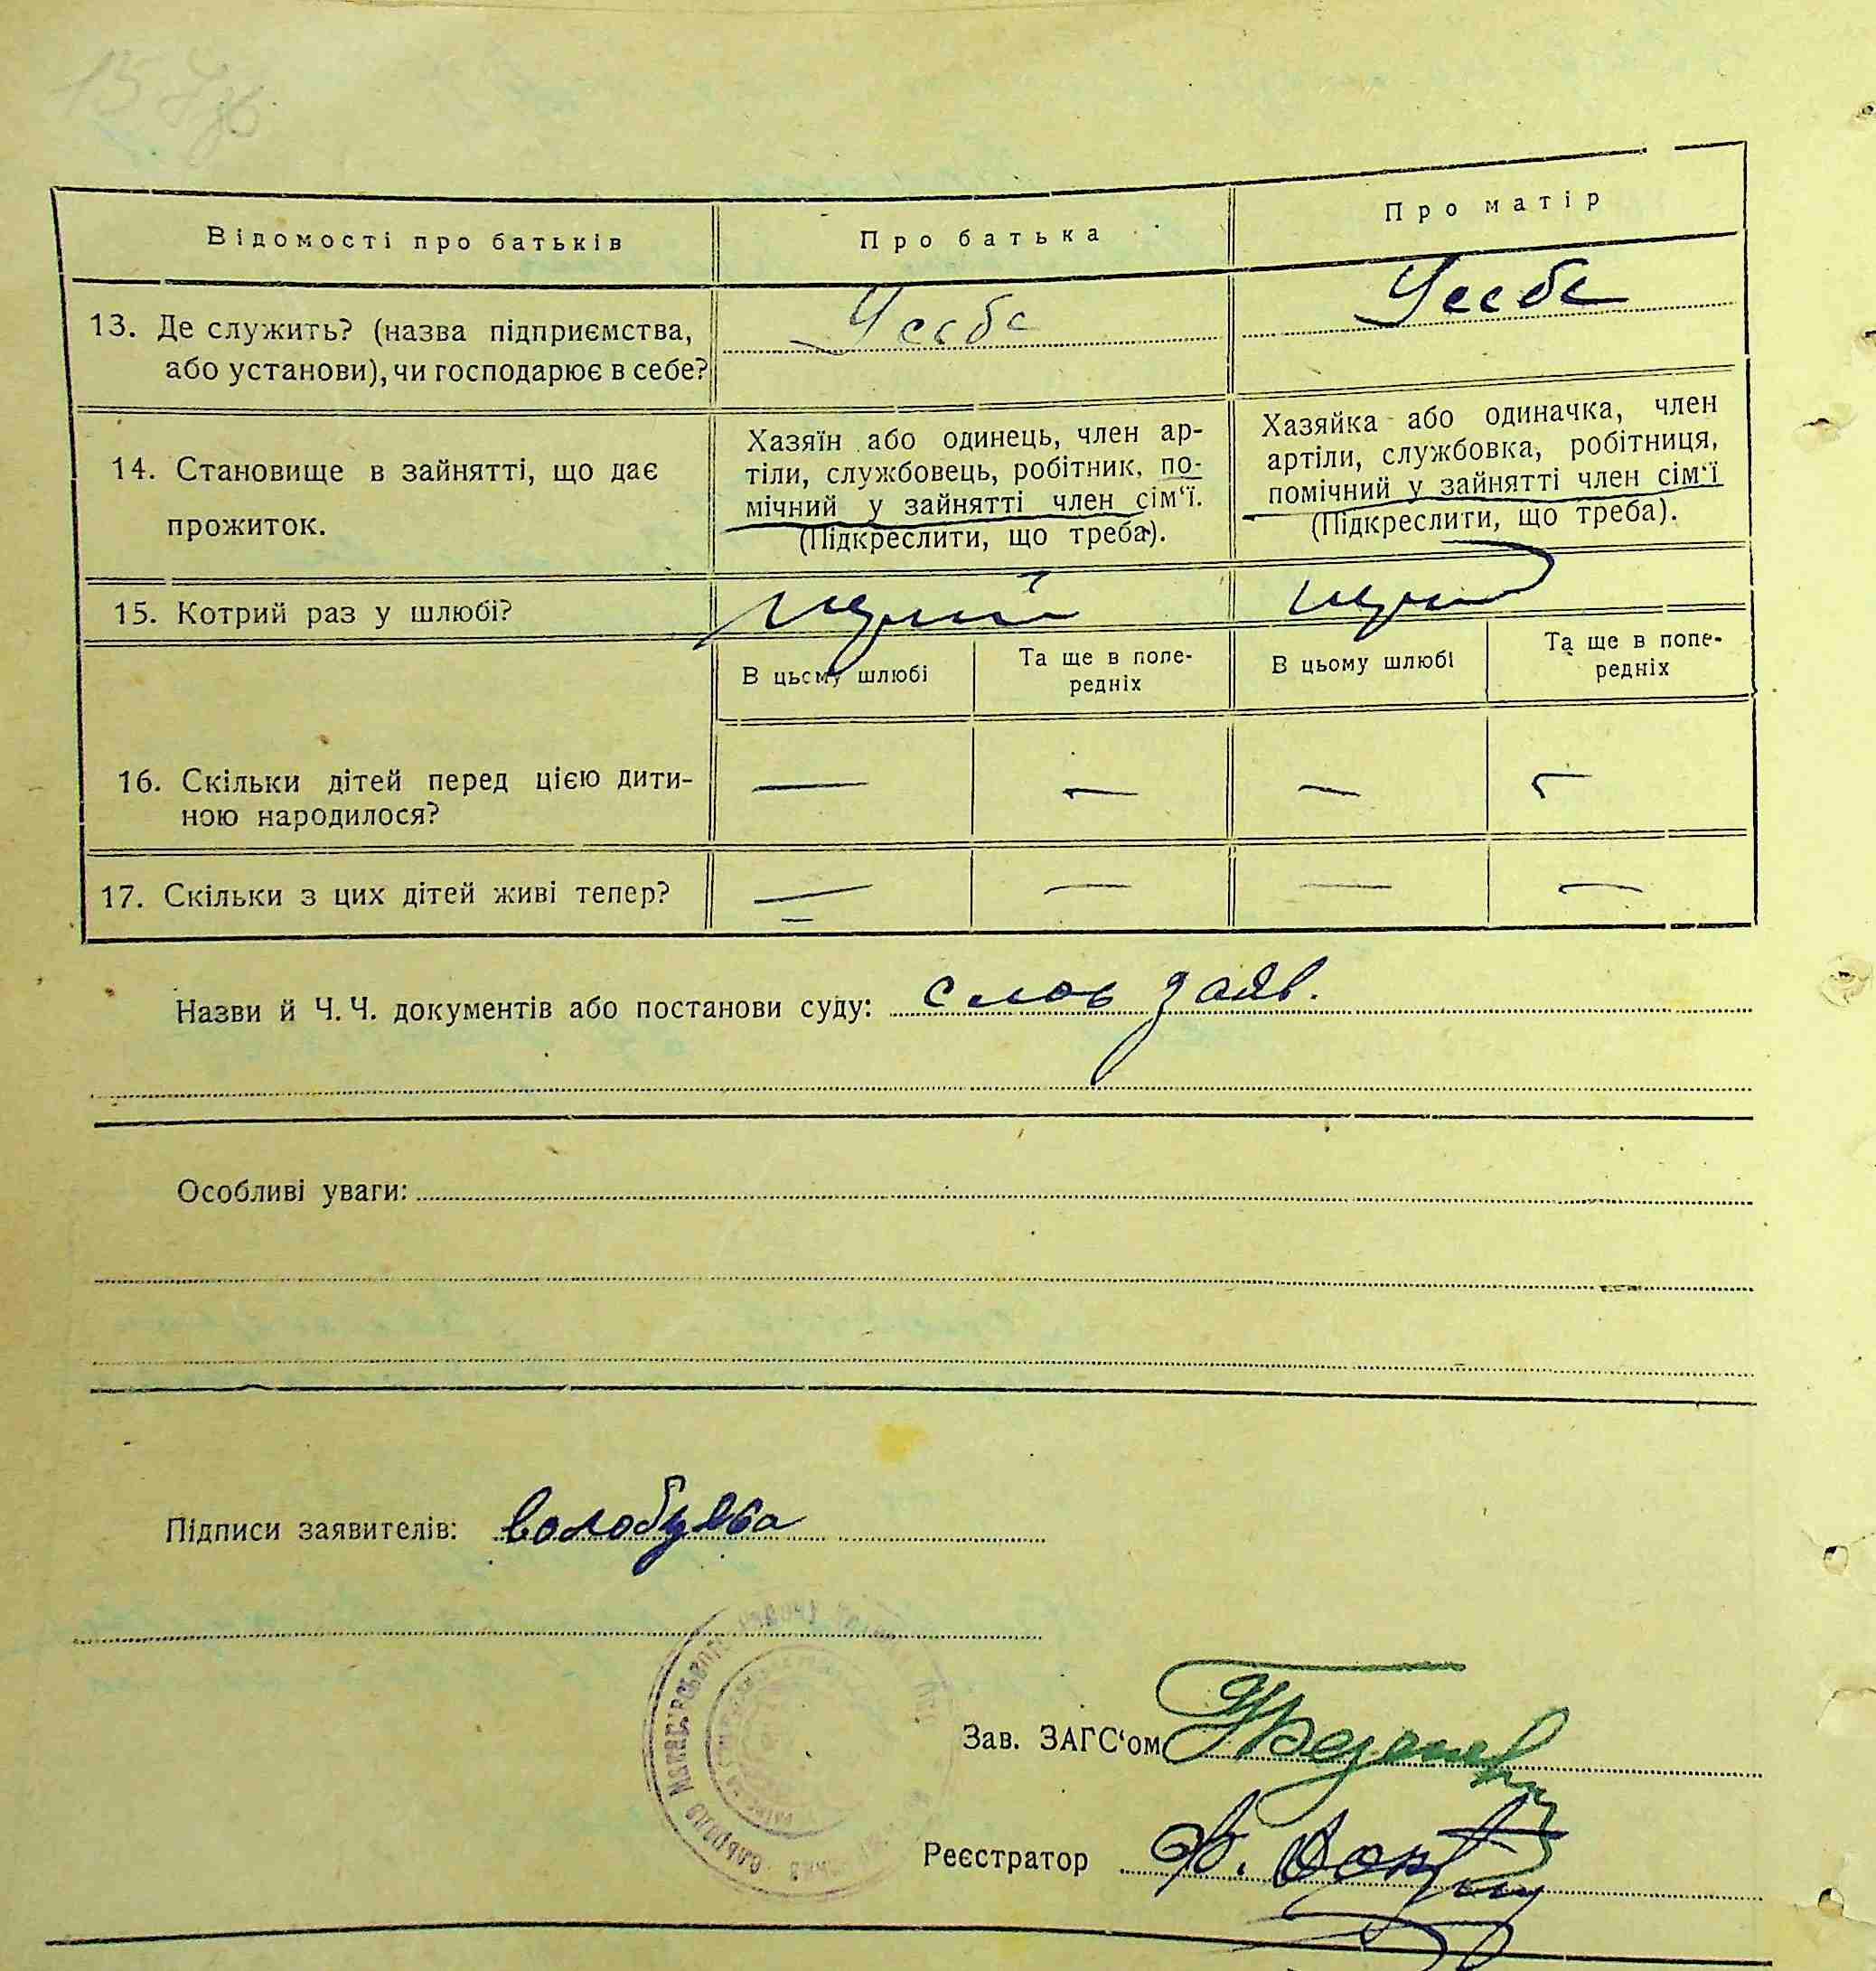 Відомості про батьків
Про батька
Про матір
13. Де служить? (назва підприємства,
або установи), чи господарює в себе?
У себе
У себе
14. Становище в зайнятті, що дає
прожиток.
Хазяїн або одинець, член ар-
тіли, службовець, робітник, по-
мічний у зайнятті член сім‘ї.
(Підкреслити, що треба).
Хазяйка або одиначка, член
артіли, службовка, робітниця,
помічний у зайнятті член сім‘ї
(Підкреслити, що треба).
15. Котрий раз у шлюбі?
В цьому шлюбі
Та ще в попе-
редніх
В цьому шлюбі
Та ще в попе-
редніх
16. Скільки дітей перед цією дити-
ною народилося?
— — — —
17. Скільки з цих дітей живі тепер?
— — — —
Назви й Ч. Ч. документів або постанови суду: слов заяв.
Особливі уваги:
Підписи заявителів: волобуева
Зав. ЗАГС‘ом
Реєстратор